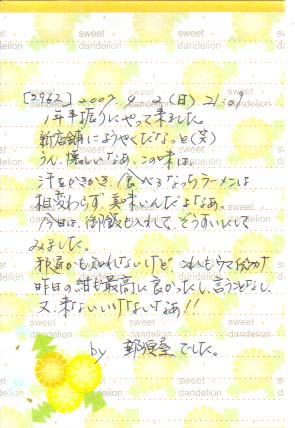 sweet dandelion
[3962] 2007. 9. 2 (日) 21:09
1年半振りにやって来ました。
新店舗にようやくだなっと(笑)
うん、懐しいなあ、この味は。
汗をかきかき、食べるなっちラーメンは
相変わらず、美味いんだよなあ。
今日は、御飯も入れて、ぞうすいにして
みました。
邪道かも知れないけど これもウマイ
昨日の 最高に良かったし、言うことなし
又、来ないといけないなあ!!
by でした。
sweet dandelion